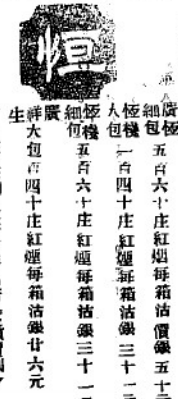 恒
廣恆
細包 五百六十庄紅烟每箱沽價銀五十
恆棧
人包 一百四十庄紅烟每箱沽銀三十一
恆棧
細包 五百六十庄紅烟每箱沽銀三十一
廣
生
祥大包百四十庄紅烟每箱沽銀廿六元